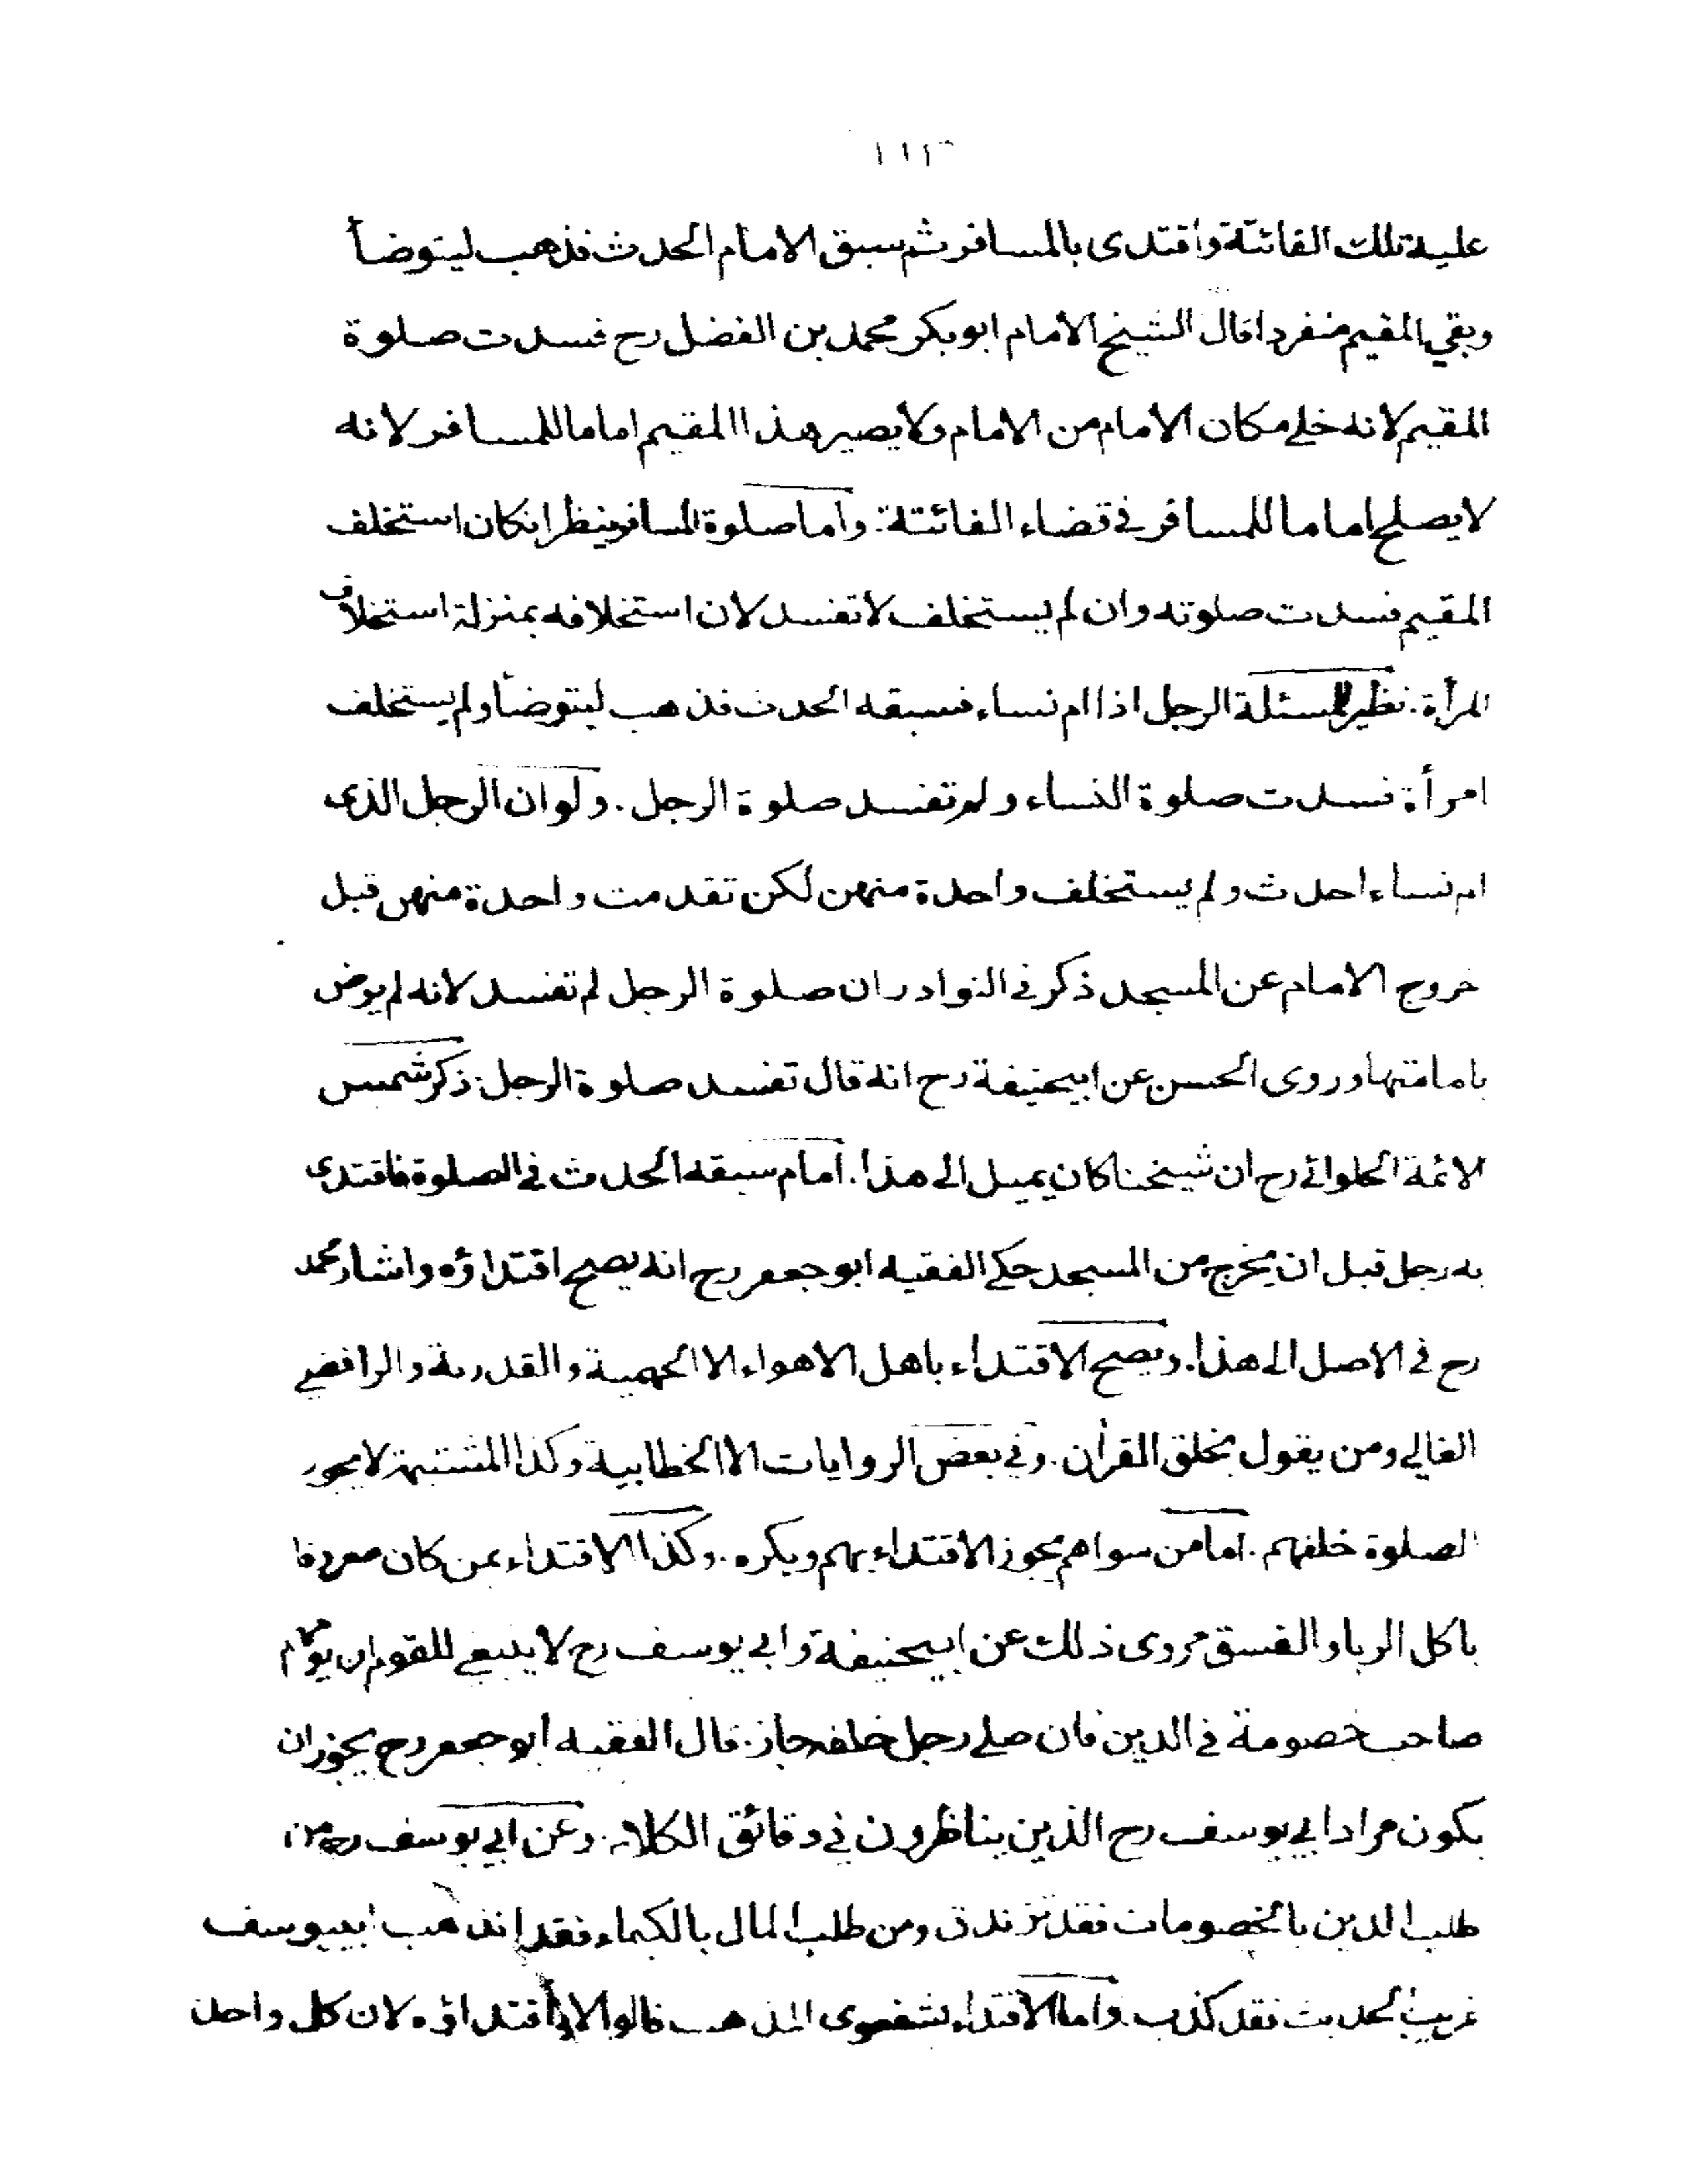 ١١٣
عليه تلك الفائتة واقتدى بالمسافر ثم سبق الامام الحدث فذهب ليتوضأ
وبقي المقيم منفردا قال الشيخ الامام ابو بكر محمد بن الفضل رح فسدت صلوة
المقيم لانه خلى مكان الامام من الامام ولا يصير هذا المقيم اماما للمسافر لانه
لا يصلح اماما للمسافر في قضاء الفائتة. واما صلوة المسافر ينظر انكان استخلف
المقيم فسدت صلوته وان لم يستخلف لا تفسد لان استخلافه بمنزلة استخلاف
المرأة. نظير المسئلة الرجل اذا ام نساء فسبقه الحدث فذهب ليتوضأ ولم يستخلف
امرأة فسدت صلوة النساء ولم تفسد صلوة الرجل. ولو ان الرجل الذى
ام نساء احدث ولم يستخلف واحدة منهن لكن تقدمت واحدة منهن قبل
خروج الامام عن المسجد ذكر في النوادر ان صلوة الرجل لم تفسد لانه لم يرض
بامامتها وروى الحسن عن ابيحنيفة رح انه قال تفسد صلوة الرجل. ذكر شمس
الائمة الحلوائى رح ان شيخنا كان يميل الى هذا. امام سبقه الحدث في الصلوة فاقتدى
به رجل قبل ان يخرج من المسجد حكى الفقيه ابو جعفر رح انه يصح اقتداؤه واشار محمد
رح في الاصل الى هذا. ويصح الاقتداء باهل الاهواء الا الجهمية والقدرية والرافضي
الغالي ومن يقول بخلق القرأن. وفي بعض الروايات الا الخطابية وكذا المشتبهة لا يجوز
الصلوة خلفهم. اما من سواهم يجوز الاقتداء بهم ويكره. وكذا الاقتداء بمن كان معروفا
باكل الربا والفسق مروى ذلك عن ابيحنيفة وابي يوسف رح لا ينبغي للقوم ان يؤمهم
صاحب خصومة في الدين فان صلى رجل خلفه جاز. قال الفقيه ابو جعفر رح يجوز ان
يكون مراد ابي يوسف رح الذين يناظرون في دقائق الكلام. وعن ابي يوسف رح من
طلب الدين بالخصومات فقد تزندق ومن طلب المال بالكيماء فقد افلس ومن طلب
غريب الحديث فقد كذب. واما الاقتداء بشفعوى المذهب قالوا لا بأس به لان كل واحد